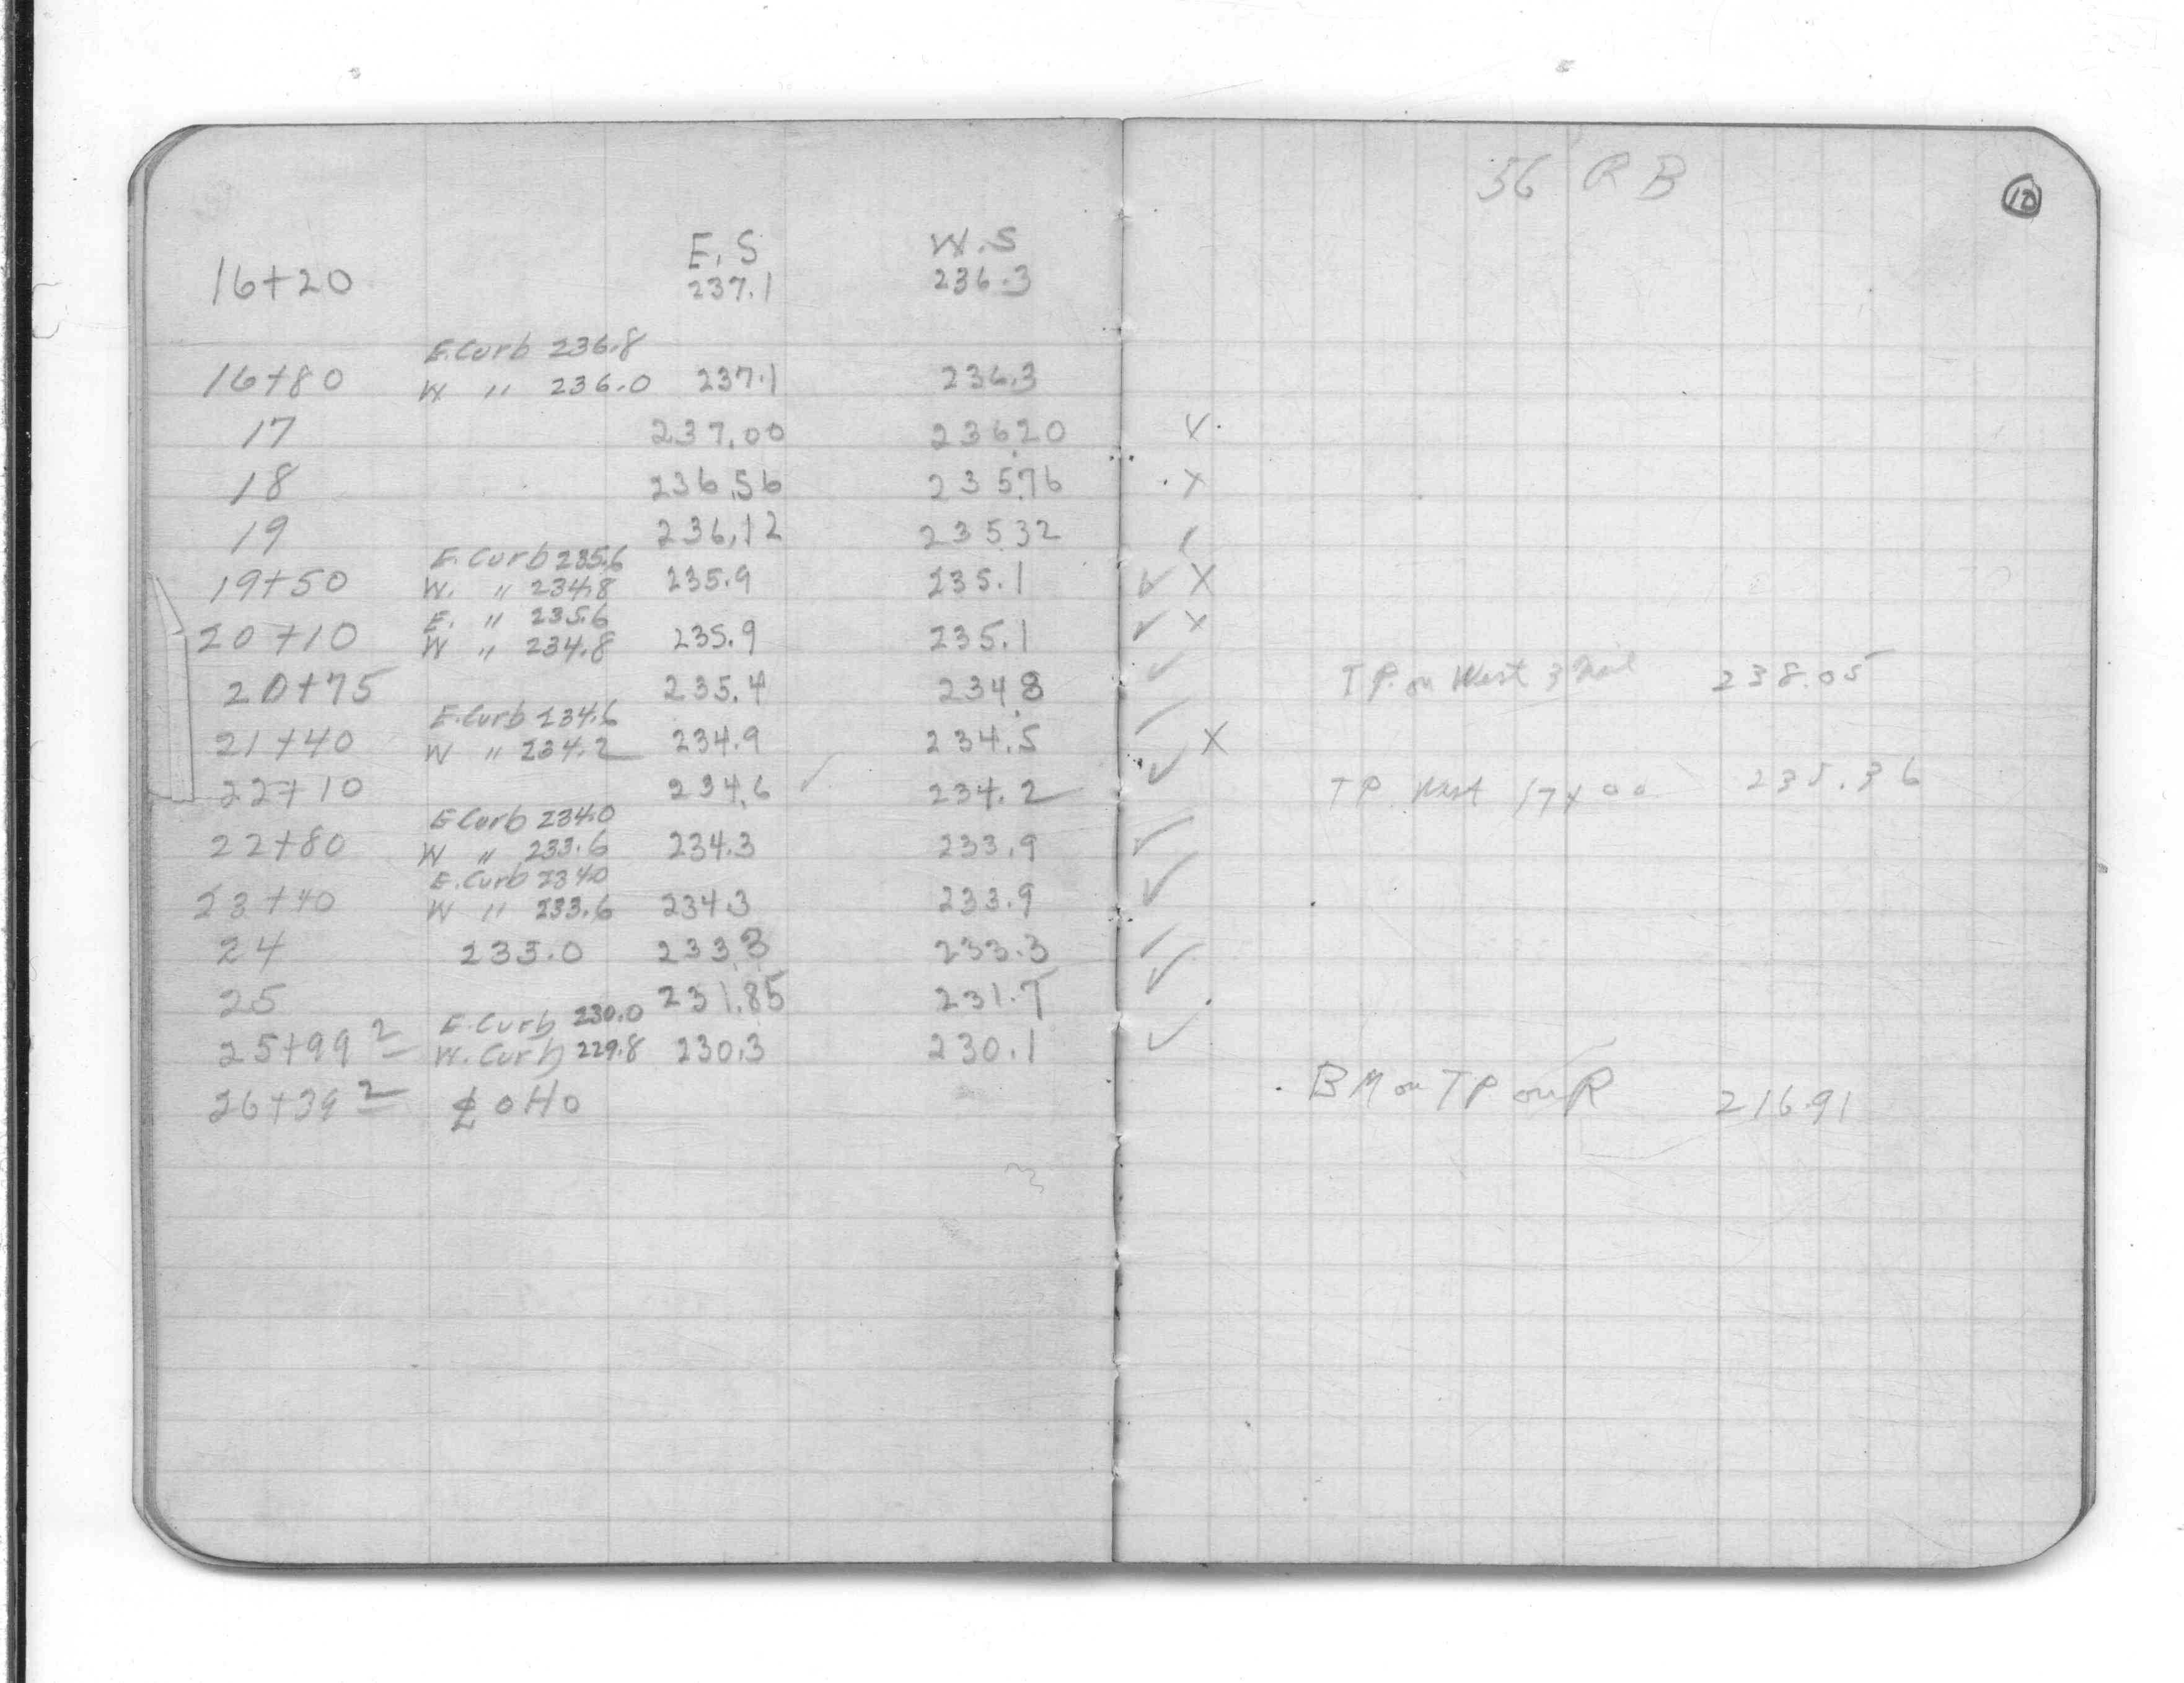 E.S W.S
16+20 237.1 236.3
E.Curb 236.8
16+80 W " 236.0 237.1 236.3
17 237.00 236.20 x
18 236.56 235.76 x
19 236.12 235.32
E.Curb 235.6
19+50 W. " 234.8 235.9 235.1 ✓ x
E. " 235.6
20+10 W " 234.8 235.9 235.1 ✓ x
20+75 235.4 234.8 ✓
E.Curb 234.6
21+40 W " 234.2 234.9 234.5 ✓ x
22+10 234.6 ✓ 234.2 ✓
E Curb 234.0
22+80 W " 233.6 234.3 233.9 ✓
E.Curb 234.0
23+40 W " 233.6 234.3 233.9 ✓
24 233.0 233.3 233.3 ✓
25 231.85 231.7 ✓
E.Curb 230.0
25+99 2 W. Curb 229.8 230.3 230.1 ✓
26+39 2 ℄ OHO
56 RB
TP. on West 238.05
TP. West 17+00 235.36
BM on TP on R 216.91